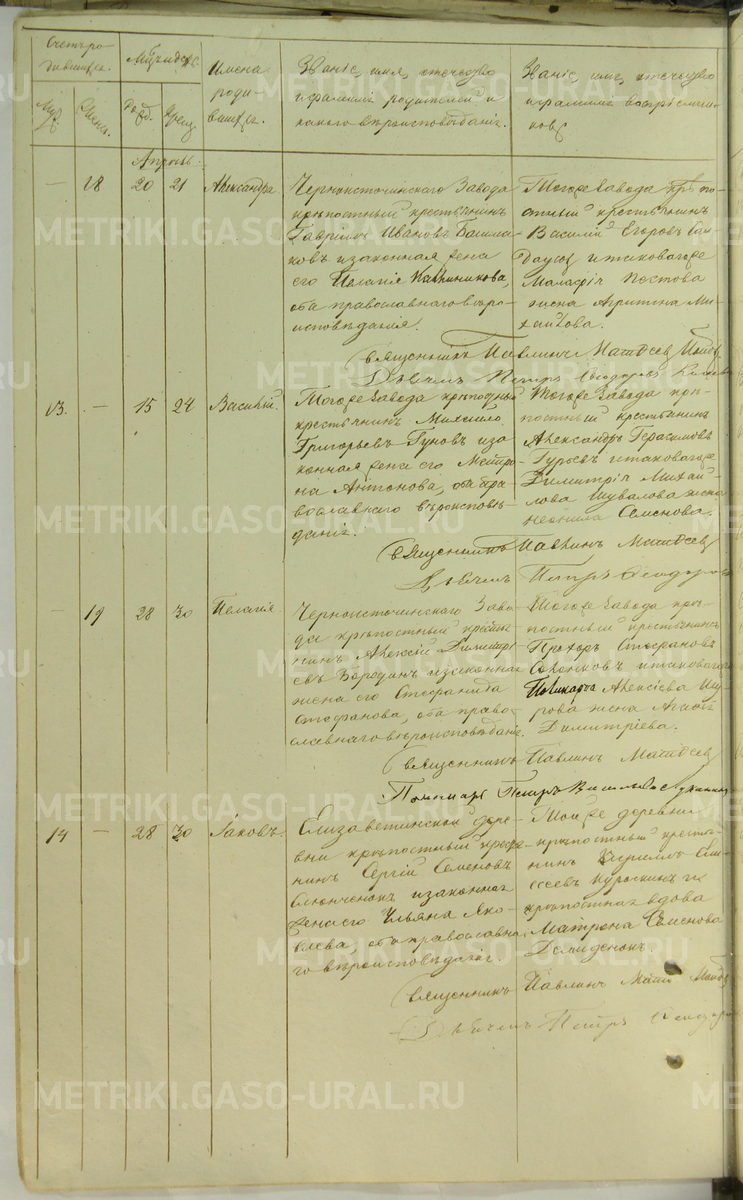 Счетъ родившихся.
Мѣсяцъ и день
Имена родившихся.
Званіе, имя, отечество
и фамилія родителей и
какого вѣроисповѣданія.
Званіе, имя, отечество
и фамилія воспріемниковъ
Муж. Женс. Рожд. Крещ.
Апрѣль.
— 18 20 21 Александра
Черноисточинскаго Завода
крѣпостный крестьянинъ
Гавріилъ Ивановъ Башмаковъ
и законная жена
его Пелагія Калинникова,
оба православнаго вѣроисповѣданія.
Тогоже Завода крѣпостный
крестьянинъ
Василій Егоровъ
и таковагоже
жена Агрипина Михайлова.
Священникъ Павлинъ Матвѣевъ
Дьячекъ Петръ Ѳеодоровъ
13. — 15 24 Василій.
Тогоже Завода крѣпостный
крестьянинъ Михаило
Григорьевъ Гуновъ и законная
жена его Матрона
Антонова, оба православнаго
вѣроисповѣданія.
Тогоже Завода крѣпостный
крестьянинъ
Александръ Герасимовъ
Гуревъ и таковагоже
Димитрія Михайлова
Шувалова жена
Неонила Семенова.
Священникъ Павлинъ Матвѣевъ
Дьячекъ Петръ Ѳеодоровъ
— 19 28 30 Пелагія.
Черноисточинскаго Завода
крѣпостный крестьянинъ
Алексѣй Димитріевъ
Бородинъ и законная
жена его Стефанида
Стефанова, оба православнаго
вѣроисповѣданія.
Тогоже Завода крѣпостный
крестьянинъ
Прохоръ Стефановъ
и таковагоже
Поликарпа Алексіева
жена Агафія
Димитріева.
Священникъ Павлинъ Матвѣевъ
Пономарь Петръ
14 — 28 30 Іаковъ.
Елизаветинской деревни
крѣпостный крестьянинъ
Сергій Семеновъ
и законная
жена его Ульяна Яковлева,
оба православнаго
вѣроисповѣданія.
Тойже деревни
крѣпостный крестьянинъ
Кириллъ
крѣпостная вдова
Матрона Семенова
Демиденокъ.
Священникъ Павлинъ
Дьячекъ Петръ Ѳеодоровъ
METRIKI.GASO-URAL.RU